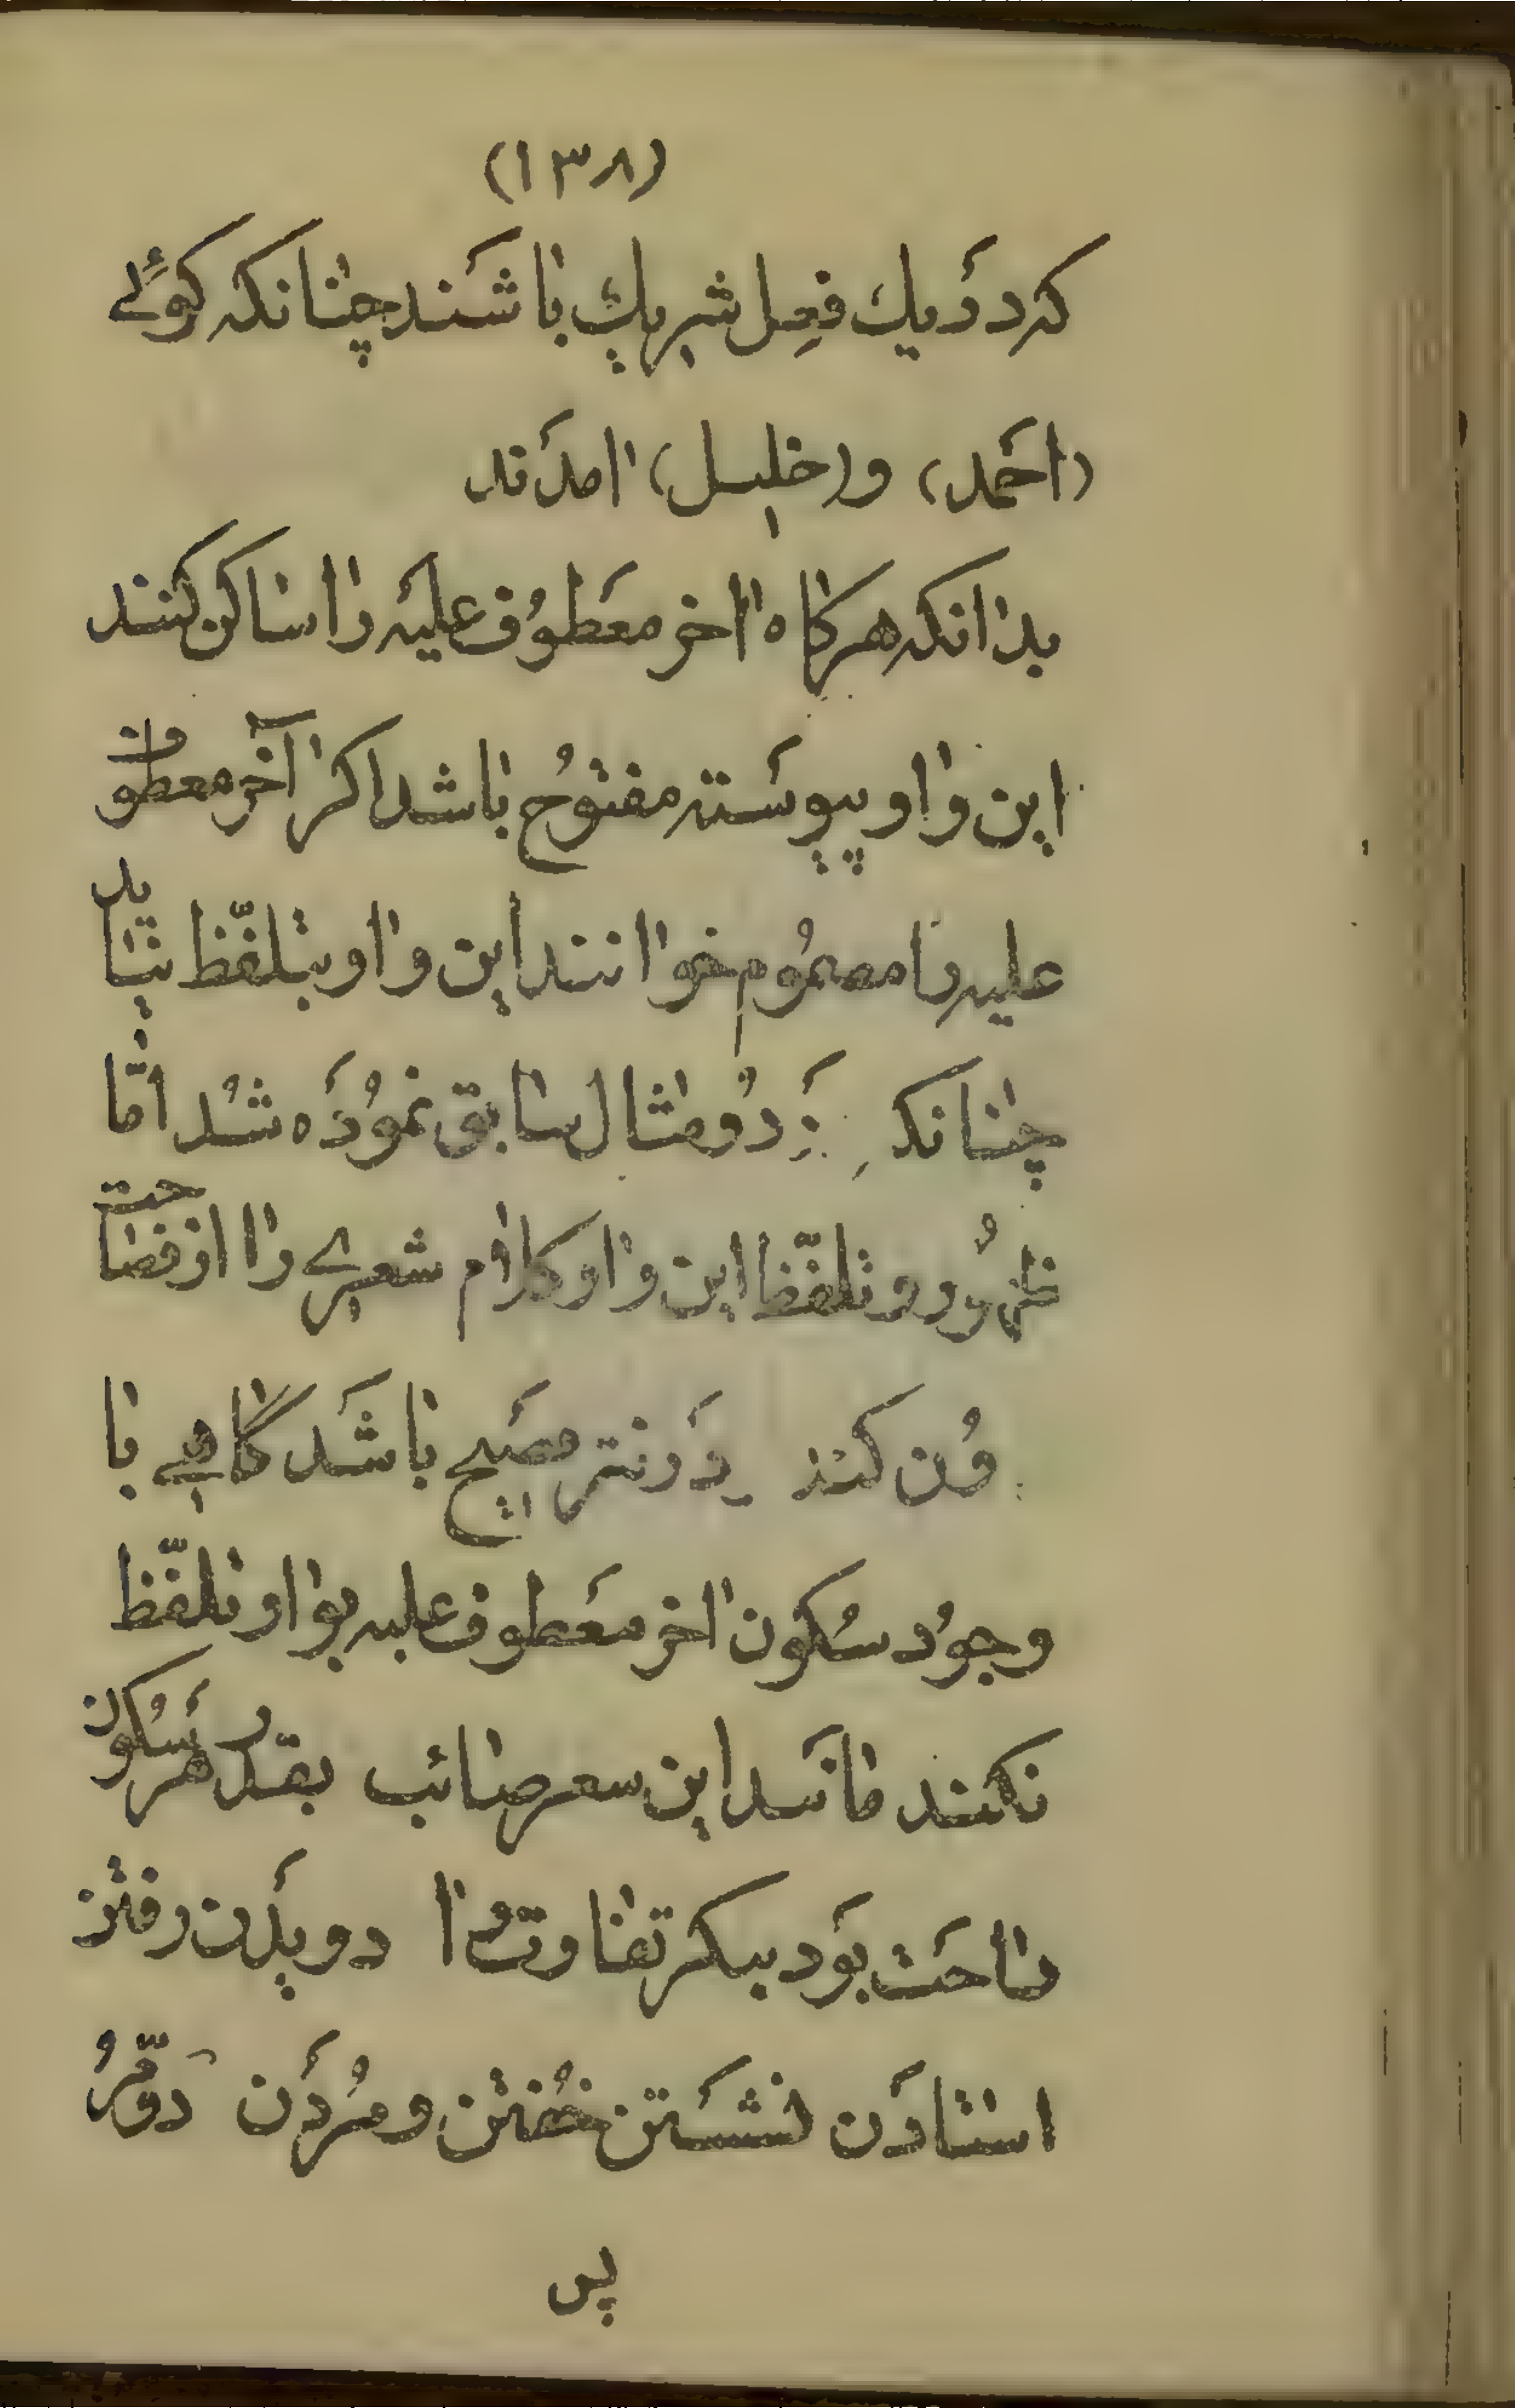 (۱۳۸)
که دَر یك فعِل شریك باشَند چنانکه گوئے
(احَمد) و (خلیل) امدَند
بدانکه هرگاه اخر معَطوُف علیَه را ساکن کنند
این واو پیوسَته مفتوُح باشد اکر آخر معطوف
علیه را مضموُم خوانند این واو بتلفّظ نیاید
چنانکه دَر دُو مثال سابق نموُدَه شُد امّا
ظهوُر و تلفّظ این واو کلام شعرے را از فصاحت
بیرُون کند دَر نثر صَیح باشَد گاهے با
وجوُد سُکون اخر معَطوف علیه بواو تلفّظ
نکنند مانَند این شعر صائب بقدر هَر سُکون
راحَت بوَد بنگر تفاوت را دویدَن رفتن
استادَن نشسَتن خُفتن و مُردَن دوّمُ
پس